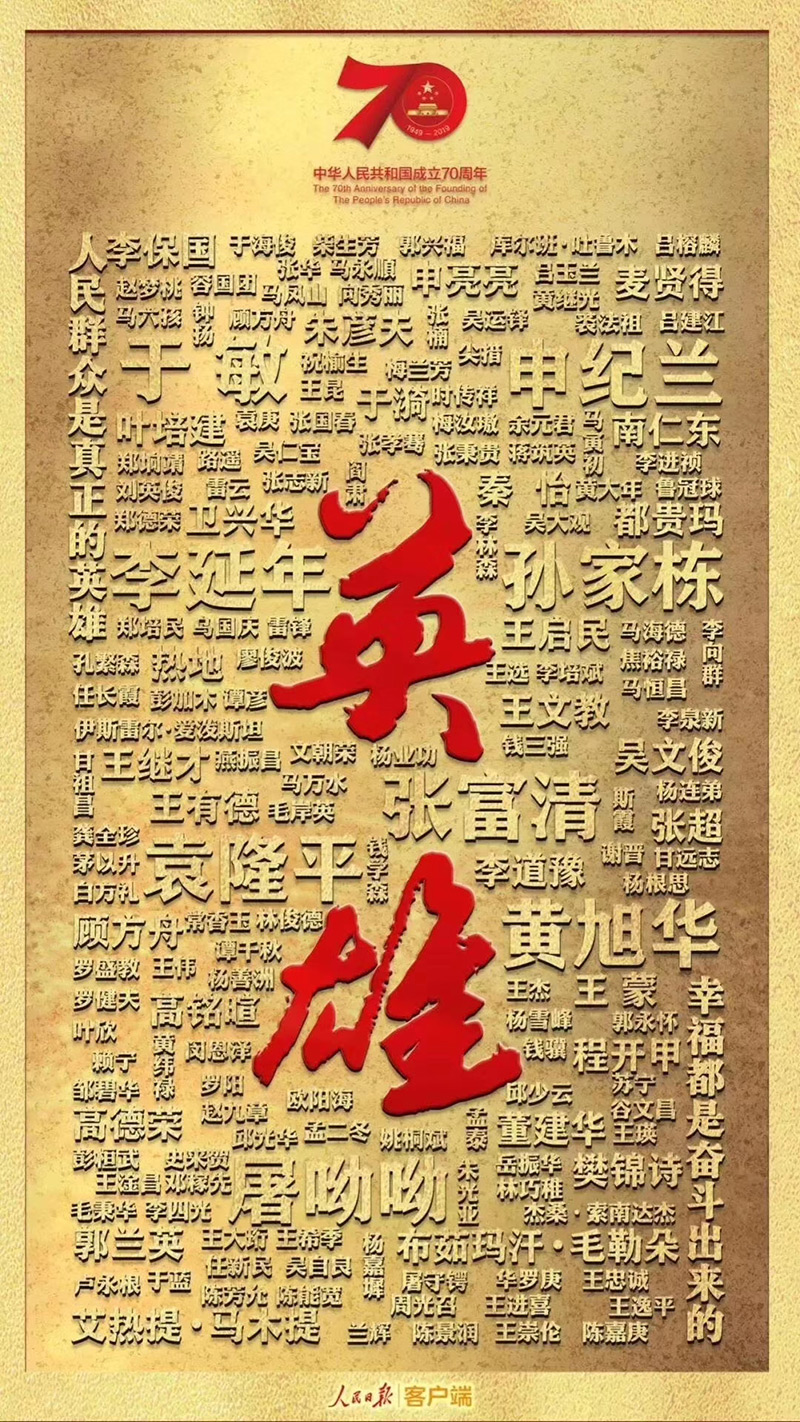 1949-2019
中华人民共和国成立70周年
The 70th Anniversary of the Founding of
The People's Republic of China
人民群众是真正的英雄
李保国 于海俊 柴生芳 郭兴福 库尔班·吐鲁木 吕榕麟
赵梦桃 容国团 张华 马永顺 申亮亮 吕玉兰 麦贤得
马凤山 向秀丽 黄继光
马六孩 钟扬 顾方舟 朱彦夫 张楠 吴运铎 裘法祖 吕建江
于敏 祝榆生 梅兰芳 申纪兰
王昆 于漪 时传祥
叶培建 袁庚 张国春 梅汝璈 余元君 马寅初 南仁东
张孝骞
郑垧靖 路遥 吴仁宝 张秉贵 蒋筑英 李进祯
刘英俊 雷云 张志新 阎肃 秦怡 黄大年 鲁冠球
郑德荣 卫兴华 李林森 吴大观 都贵玛
李延年 孙家栋
郑培民 乌国庆 雷锋 王启民 马海德 李向群
孔繁森 热地 廖俊波 王选 李培斌 焦裕禄
任长霞 彭加木 谭彦 王文教 马恒昌
伊斯雷尔·爱泼斯坦 李泉新
甘祖昌 王继才 燕振昌 文朝荣 杨业功 钱三强 吴文俊
马万水 张富清 斯霞 杨连弟
王有德 毛岸英 张超
龚全珍 袁隆平 钱学森 谢晋 甘远志
茅以升 李道豫 杨根思
白万礼
顾方舟 常香玉 林俊德 黄旭华
谭千秋
罗盛教 王伟 杨善洲
罗健夫 高铭暄 王杰 王蒙
叶欣 杨雪峰 郭永怀
赖宁 黄纬禄 闵恩泽 钱骥 程开甲
邹碧华 罗阳 欧阳海 邱少云 苏宁
高德荣 赵九章 孟泰 董建华 谷文昌
邱光华 孟二冬 姚桐斌 王瑛
彭桓武 史来贺 屠呦呦 朱光亚 岳振华 樊锦诗
王淦昌 邓稼先 林巧稚
毛秉华 李四光 杰桑·索南达杰
郭兰英 王大珩 王希季 杨嘉墀 布茹玛汗·毛勒朵
任新民 吴自良
卢永根 于蓝 屠守锷 华罗庚 王忠诚
陈芳允 陈能宽 周光召 王进喜 王逸平
艾热提·马木提 兰辉 陈景润 王崇伦 陈嘉庚
英雄
幸福都是奋斗出来的
人民日报 客户端